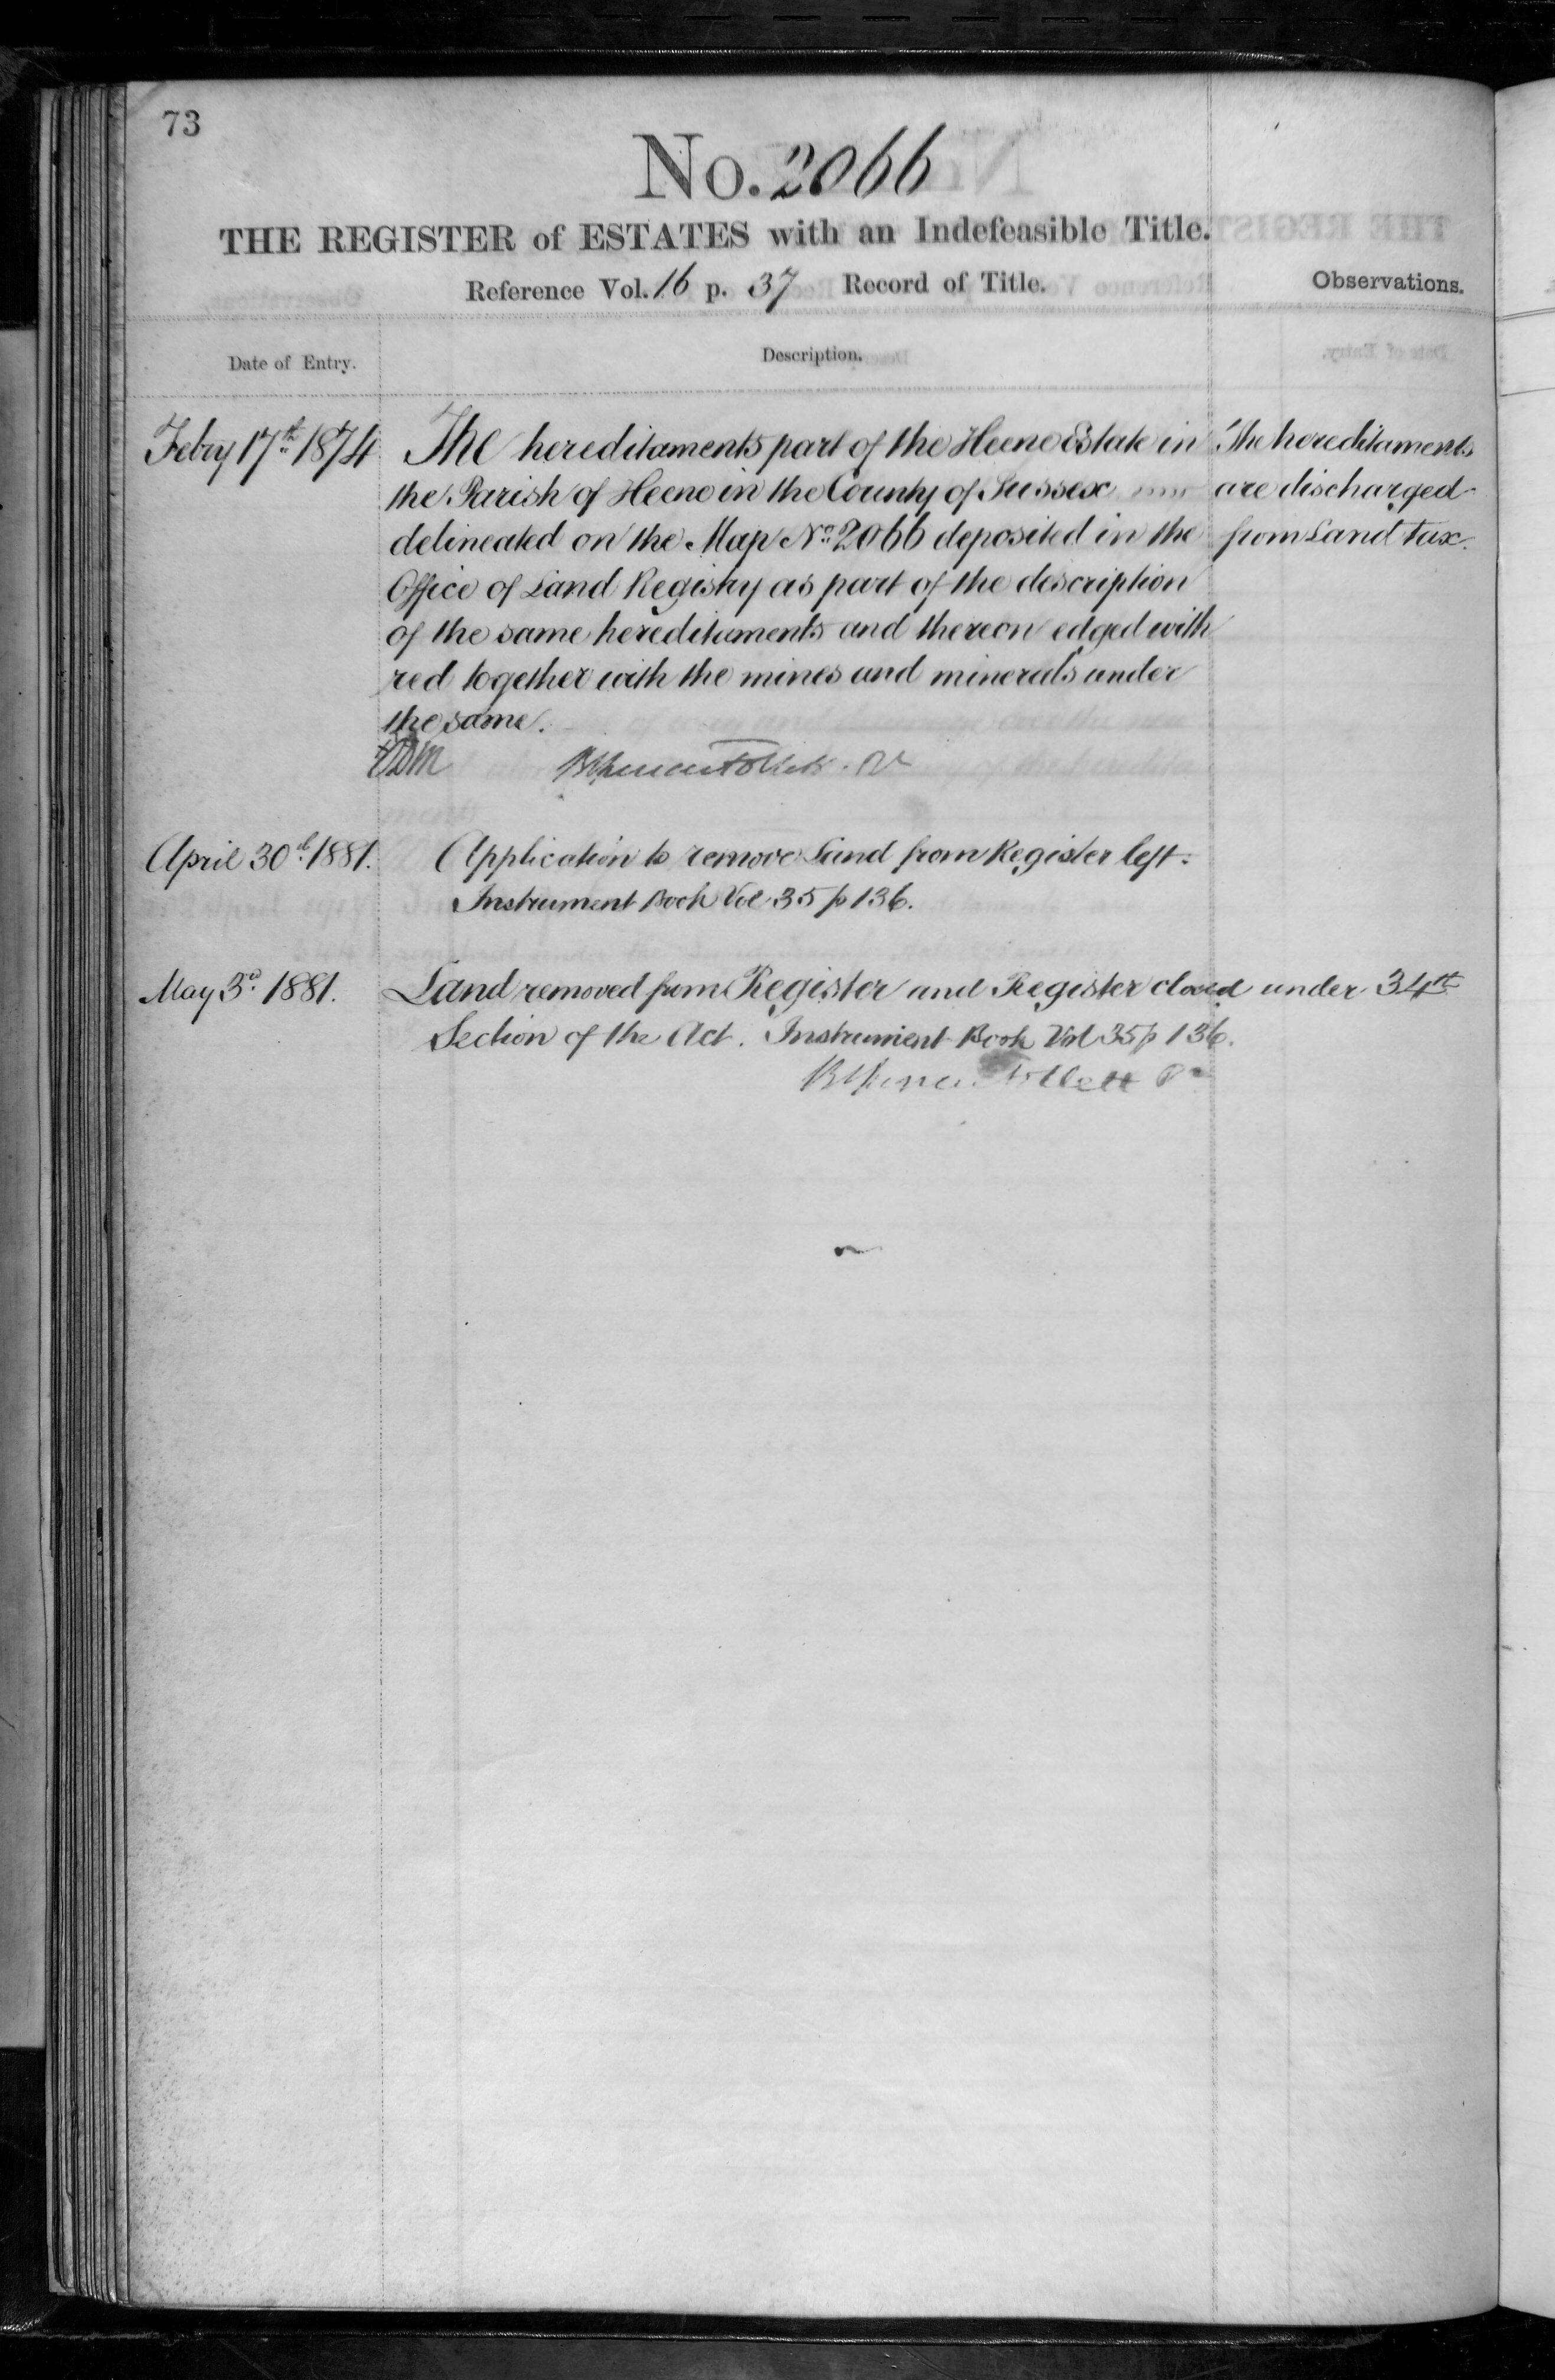 73
No. 2066
THE REGISTER of ESTATES with an Indefeasible Title.
Reference Vol. 16 p. 37 Record of Title.
Observations.
Date of Entry.
Description.
Febry 17th 1874
The hereditaments part of the Heene Estate in
the Parish of Heene in the County of Sussex
delineated on the Map No. 2066 deposited in the
Office of Land Registry as part of the description
of the same hereditaments and thereon edged with
red together with the mines and minerals under
the same.
The hereditaments
are discharged
from Land tax.
Follett
April 30th 1881.
Application to remove Land from Register left.
Instrument Book Vol 35 p 136.
May 3d 1881.
Land removed from Register and Register closed under 34th
Section of the Act. Instrument Book Vol 35 p 136.
Follett